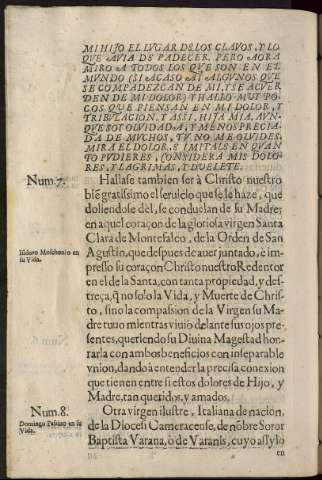 MI HIJO EL LUGAR DE LOS CLAVOS, Y LO
QUE AUIA DE PADECER. PERO AORA
MIRO A TODOS LOS QUE SON EN EL
MVNDO (SI ACASO AY ALGVNOS QUE
SE COMPADEZCAN DE MI, Y SE ACUER
DEN DE MI DOLOR) Y HALLO MUY PO
COS, QUE PIENSAN EN MI DOLOR, Y
TRIBVLACION, Y ASSI, HIJA MIA, AVN-
QUE SOY OLVIDADA, Y MENOSPRECIA-
DA DE MVCHOS, TV NO ME OLVIDES,
MIRA EL DOLOR, E IMITALE EN QVAN
TO PVDIERES, CONSIDERA MIS DOLO
RES, Y LAGRIMAS, Y DVELETE.
Num 7. Hallase tambien ser à Christo nuestro
biē gratissimo el seruicio que se le haze, que
doliendose del, se conduelan de su Madre;
en aquel coraçon de la gloriosa virgen Santa
Clara de Montefalco, de la Orden de San
Isidoro Mosconio en su Vida.
Agustin, que despues de auer juntado, è im-
presso su coraçon Christo nuestro Redentor
en el de la Santa, con tanta propiedad, y des-
treça, q̃ no solo la Vida, y Muerte de Chris-
to, sino la compasion de la Virgen su Ma-
dre tuuo mientras viuio delante sus ojos pre-
sentes, queriendo su Diuina Magestad hon-
rarla con ambos beneficios con inseparable
vnion, dando à entender la precisa conexion
que tienen entre si estos dolores de Hijo, y
Madre, tan queridos, y amados.
Num. 8. Otra virgen ilustre, Italiana de nacion,
Domingo Pasino en su Vida.
de la Diocesi Cameracense, de nōbre Soror
Baptista Varana, ò de Varanis, cuyo assylo
en